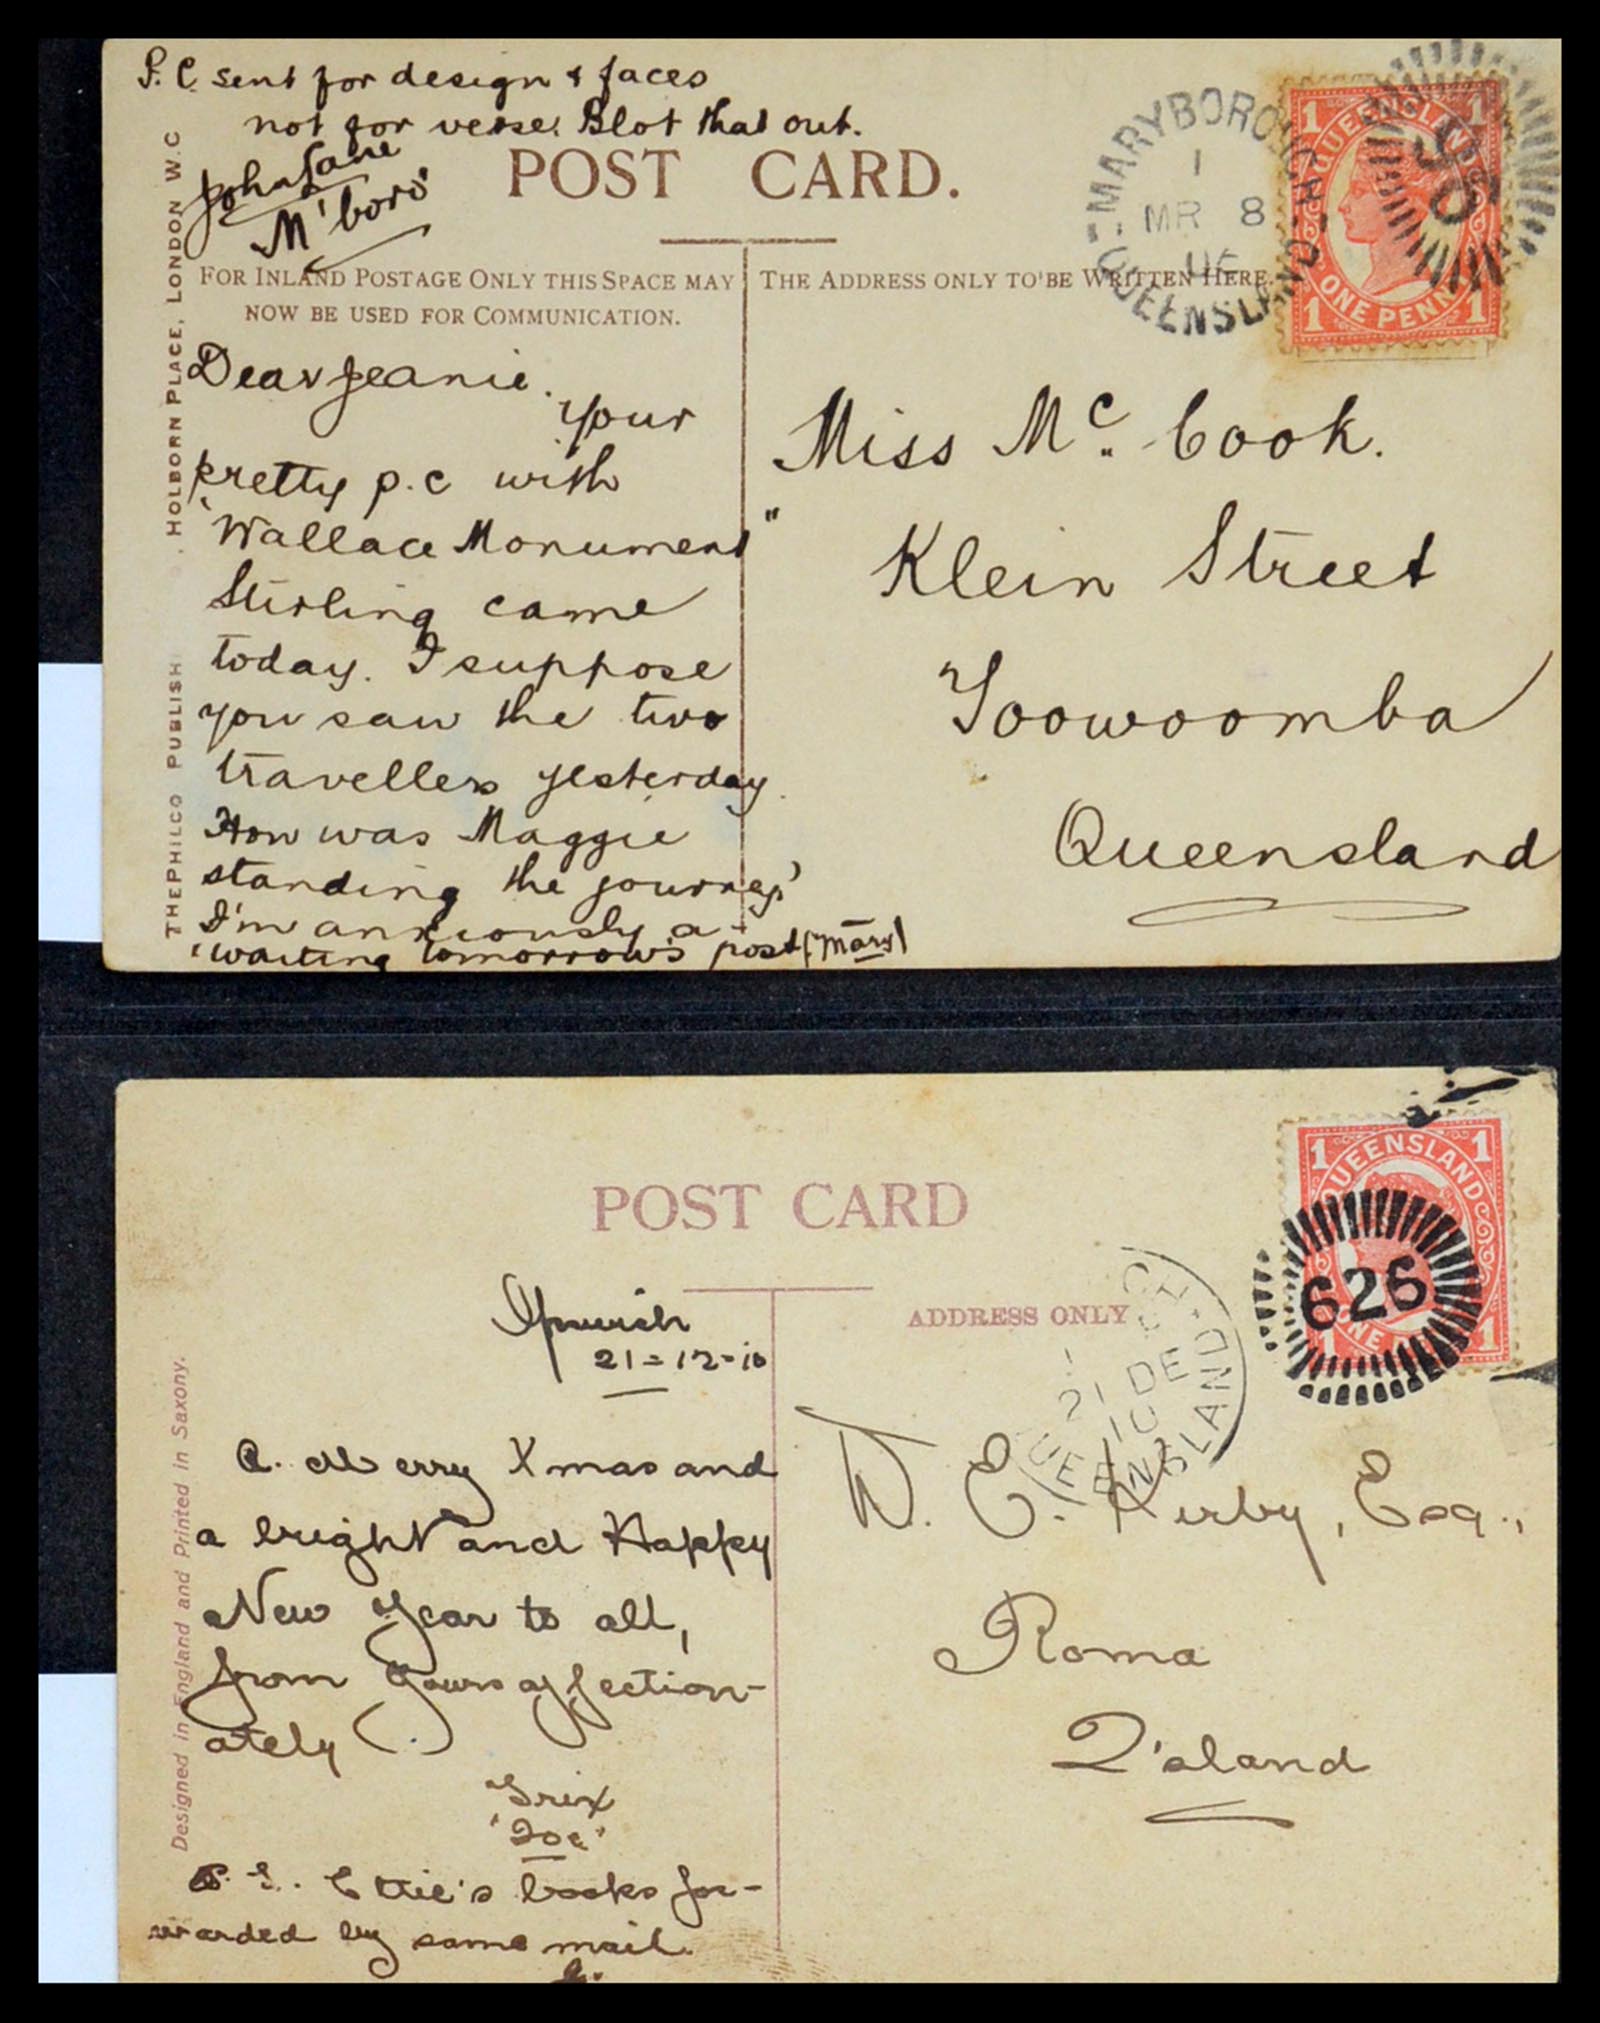 P.C. sent for design & faces
not for verse. Blot that out.
John Lane
M'boro'
POST CARD.
FOR INLAND POSTAGE ONLY THIS SPACE MAY
NOW BE USED FOR COMMUNICATION.
THE ADDRESS ONLY TO BE WRITTEN HERE.
MARYBOROUGH
1
MR 8
QUEENSLAND
1 QUEENSLAND 1
1 ONE PENNY 1
THE PHILCO PUBLISH
HOLBORN PLACE, LONDON W.C
Dear Jeanie.
Your
pretty p.c with
"Wallace Monument"
Stirling came
today. I suppose
you saw the two
travellers yesterday.
How was Maggie
standing the journey?
I'm anxiously a-
waiting tomorrow's post (Mary)
Miss Mc. Cook.
Klein Street
Toowoomba
Queensland
POST CARD
ADDRESS ONLY
1 QUEENSLAND 1
626
ONE
1
1
21 DE
10
QUEENSLAND
Designed in England and Printed in Saxony.
Ipswich
21-12-10
A. Merry Xmas and
a bright and Happy
New Year to all,
from Yours affection-
ately (.)
Trix
W. E. Kirby, Esq.,
Roma
Q'sland
P.S. Ettie's books for-
warded by same mail.